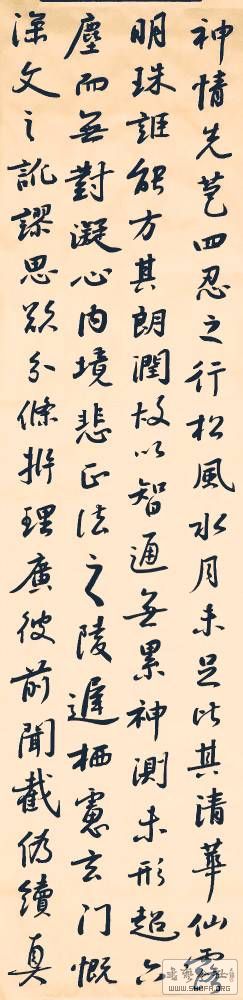 神情先苞四忍之行松風水月未足比其清華仙露
明珠詎能方其朗潤故以智通無累神測未形超六
塵而無對凝心内境悲正法之陵遲栖慮玄门慨
深文之訛謬思欲分條析理廣彼前聞截偽續真
WWW.SHUFA.ORG